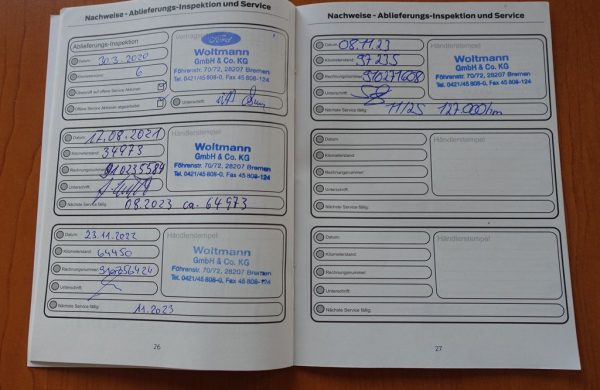 Nachweise - Ablieferungs-Inspektion und Service
Ablieferungs-Inspektion
Datum: 30.3.2020
Kilometerstand: 6
Überprüft auf offene Service-Aktionen
Offene Service-Aktionen abgearbeitet
Ford
Woltmann
GmbH & Co. KG
Föhrenstr. 70/72, 28207 Bremen
Tel. 0421/45 808-0, Fax 45 808-124
Unterschrift:
Datum: 17.08.2021
Kilometerstand: 34973
Rechnungsnummer:
Unterschrift:
Nächste Service fällig: 08.2023 ca. 64973
Händlerstempel
Woltmann
GmbH & Co. KG
Föhrenstr. 70/72, 28207 Bremen
Tel. 0421/45 808-0, Fax 45 808-124
Datum: 23.11.2022
Kilometerstand: 64450
Rechnungsnummer: 910256424
Unterschrift:
Nächste Service fällig: 11.2023
Händlerstempel
Woltmann
GmbH & Co. KG
Föhrenstr. 70/72, 28207 Bremen
Tel. 0421/45 808-0, Fax 45 808-124
26
Nachweise - Ablieferungs-Inspektion und Service
Datum: 08.11.23
Kilometerstand: 97235
Rechnungsnummer: 910271608
Unterschrift:
Nächste Service fällig: 11/25 127.000km
Händlerstempel
Woltmann
GmbH & Co. KG
Föhrenstr. 70/72, 28207 Bremen
Tel. 0421/45 808-0, Fax 45 808-124
Datum:
Kilometerstand:
Rechnungsnummer:
Unterschrift:
Nächste Service fällig:
Händlerstempel
Datum:
Kilometerstand:
Rechnungsnummer:
Unterschrift:
Nächste Service fällig:
Händlerstempel
27